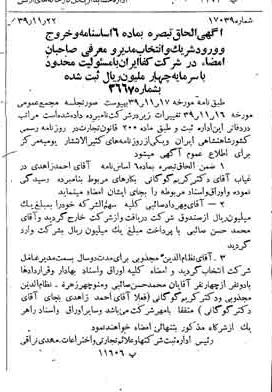 شماره۱۷۰۳۹ ۳۹/۱۱/۲۲
آگهی الحاق تبصره بماده ۶ اساسنامه و خروج
و ورود شریك و انتخاب مدیر و معرفی صاحبان
امضاء در شركت كفا ایران با مسئولیت محدود
با سرمایه چهار ملیون ریال ثبت شده
بشماره ۳۶۶۷
طبق نامه مورخه ۳۹/۱۱/۱۷ بپیوست صورتجلسه مجمع عمومی
مورخه ۳۹/۱۱/۱۶ تغییرات زیر در شركت نامبرده داده شده است مراتب
در دفاتر این اداره ثبت و طبق ماده ۲۰۰ قانون تجارت در روزنامه رسمی
كشور شاهنشاهی ایران ویكی از روزنامه های كثیرالانتشار یومیه مركز
برای اطلاع عموم آگهی میشود
۱ – ضمن الحاق تبصره بماده ۶ اساس نامه آقای احمد زاهدی در
غیاب آقای دكتر كریم گوگانی بكارهای مربوط بنامبرده رسیدگی
نموده و اوراق و اسناد مربوطه را بجای ایشان امضاء مینماید
۲ – آقای مهرداد صائبی كلیه سهم الشركه خود را بمبلغ یك
میلیون ریال از صندوق شركت دریافت و از شركت خارج گردید و آقای
محمد حسن صائبی با پرداخت مبلغ یك میلیون ریال وارد شركت
گردید
۳ – آقای نظام الدین مجذوبی برای مدت دو سال بسمت مدیر عامل
شركت انتخاب گردید و امضاء كلیه اوراق و اسناد بهادار و قراردادها
با دو نفر از چهار نفر آقایان محمد حسن صائبی ومنوچهر زهره – نظام الدین
مجذوبی و دكتر كریم گوگانی (فعلا آقای احمد زاهدی بجای آقای
دكتر گوگانی) متفقا با مهر شركت می باشد و سایر اوراق و اسناد را هر
یك از شركاء مذكور بتنهائی امضاء خواهند نمود
رئیس اداره ثبت شركتها و علائم تجارتی و اختراعات. مهدی نراقی
پ ۱۱۶۰۶